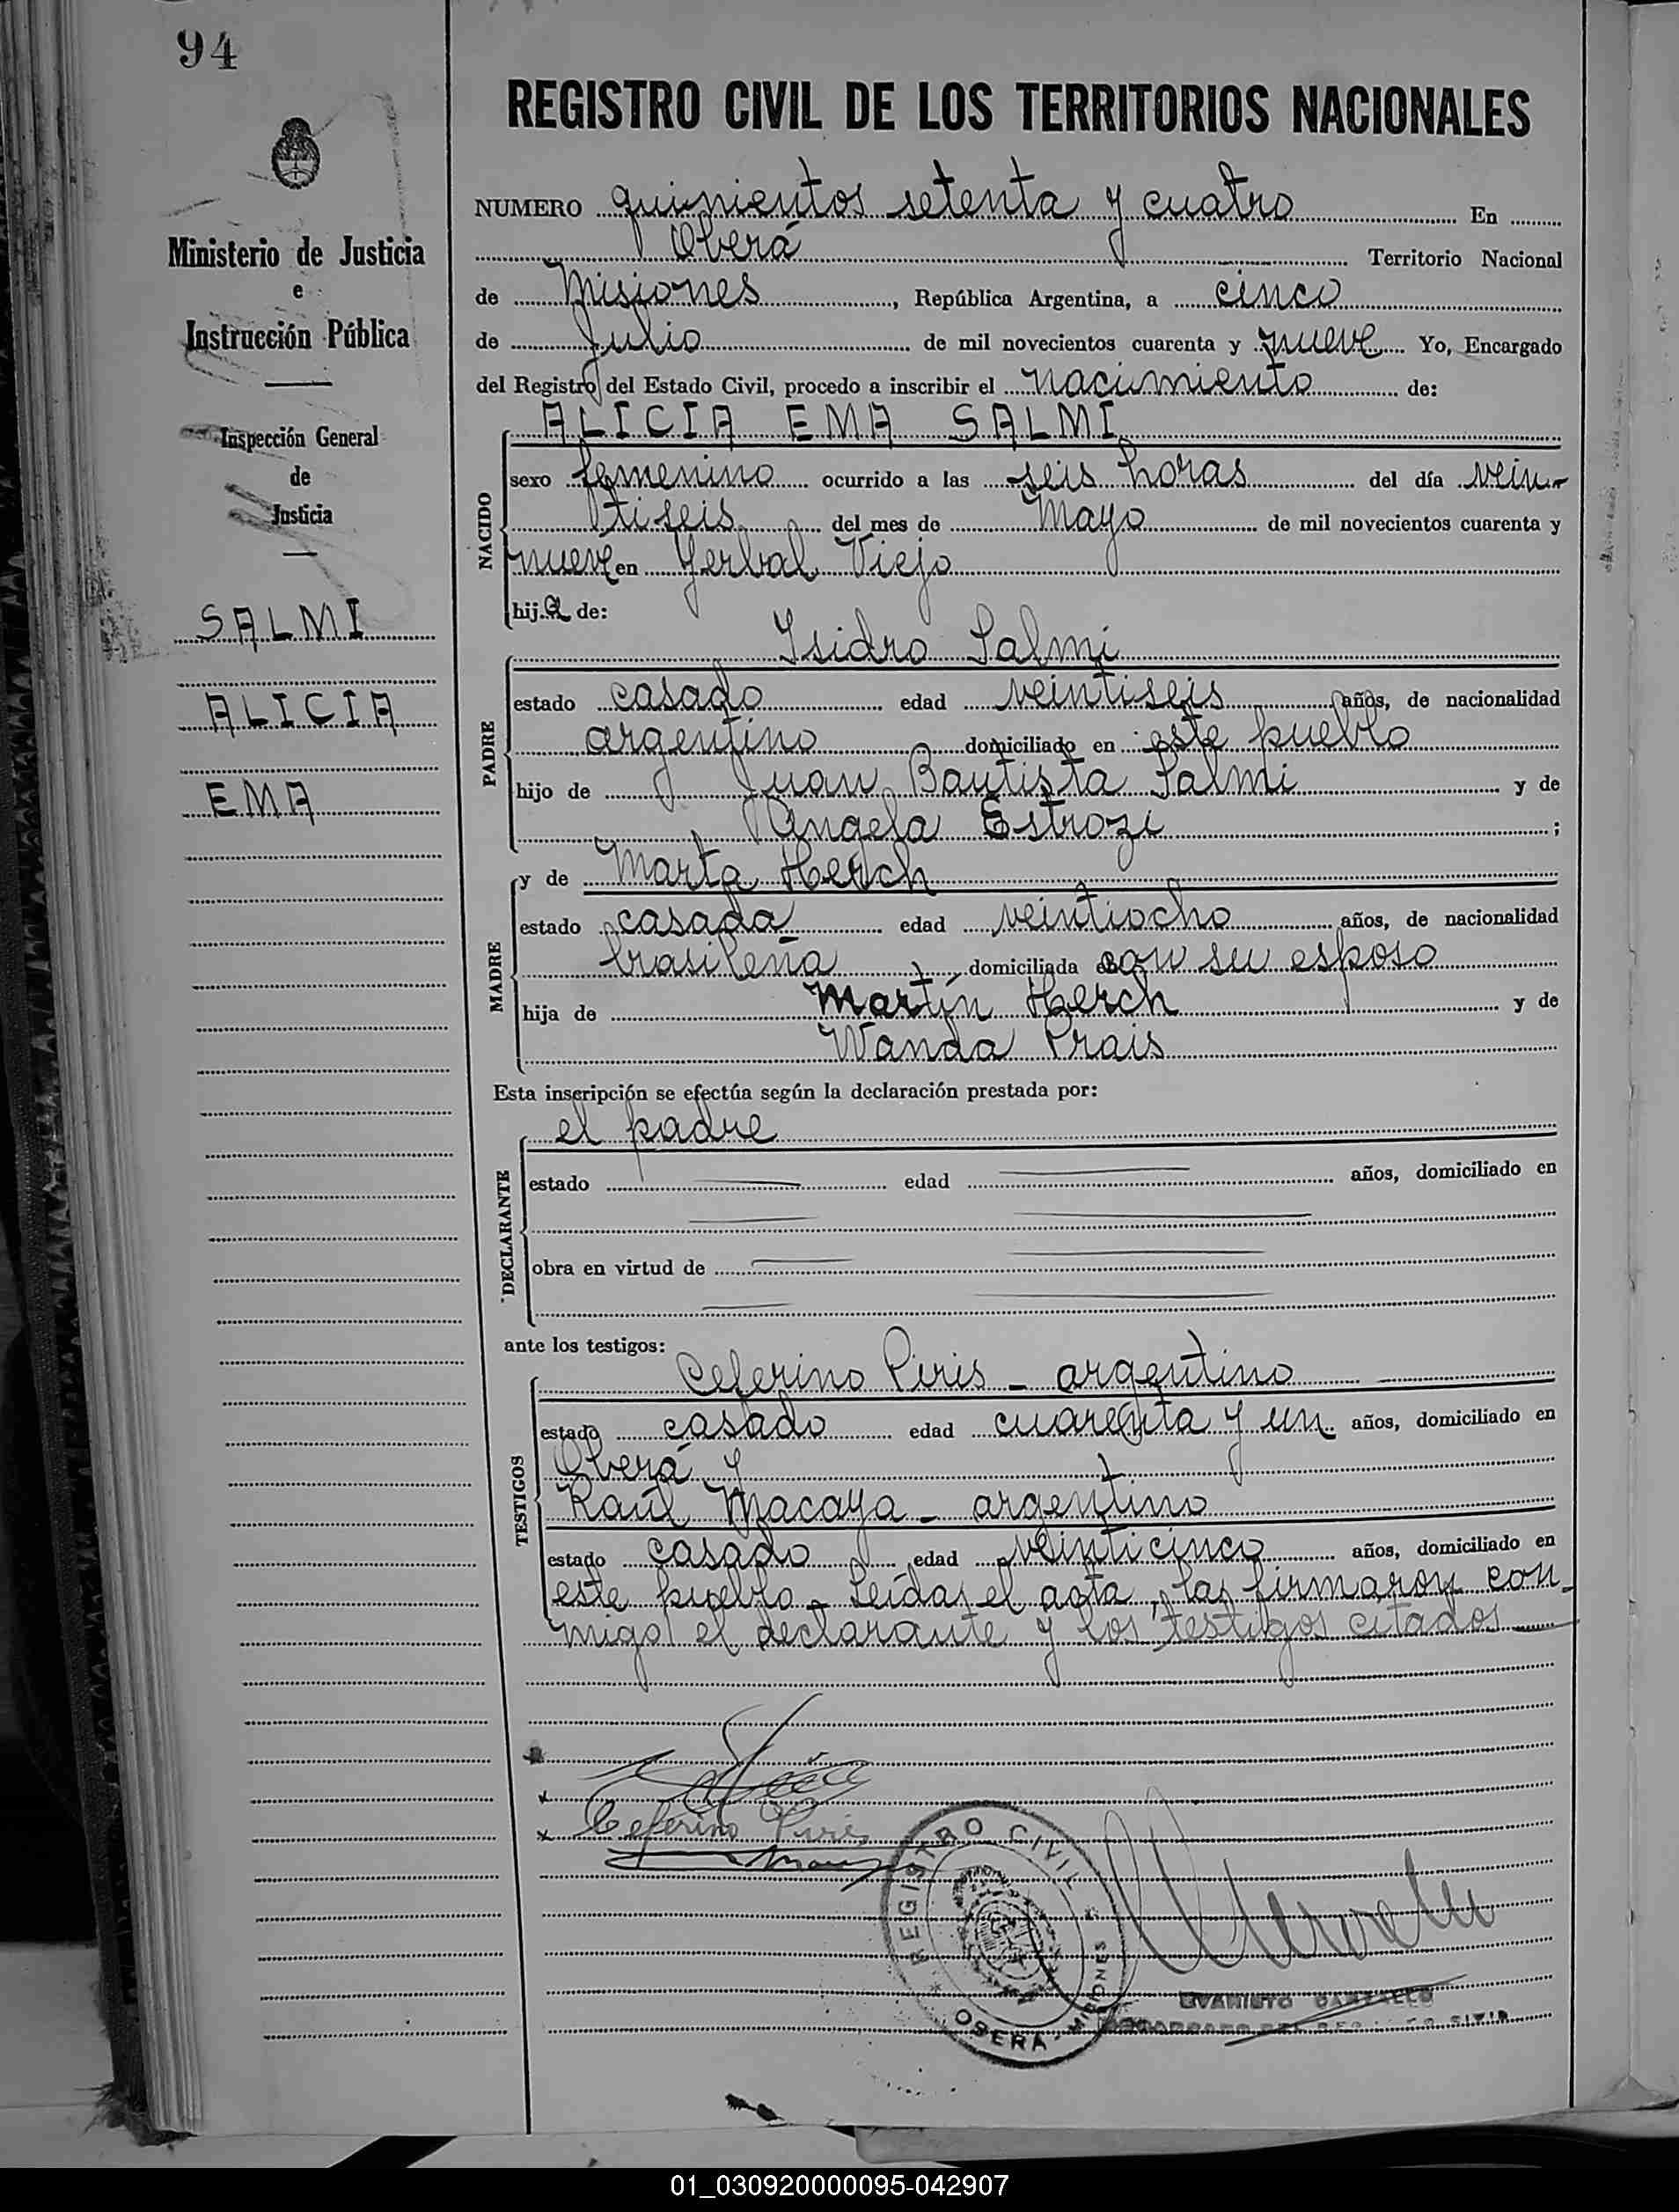 94
REGISTRO CIVIL DE LOS TERRITORIOS NACIONALES
NUMERO quinientos setenta y cuatro En
Oberá Territorio Nacional
de Misiones, República Argentina, a cinco
de Julio de mil novecientos cuarenta y nueve Yo, Encargado
del Registro del Estado Civil, procedo a inscribir el nacimiento de:
Ministerio de Justicia
e
Instrucción Pública
Inspección General
de
Justicia
SALMI
ALICIA
EMA
NACIDO
ALICIA EMA SALMI
sexo femenino ocurrido a las seis horas del día vein-
tiseis del mes de Mayo de mil novecientos cuarenta y
nueve en Yerbal Viejo
hija de:
PADRE
Isidro Salmi
estado casado edad veintiseis años, de nacionalidad
argentino domiciliado en este pueblo
hijo de Juan Bautista Salmi y de
Angela Estrozi;
MADRE
y de Marta Herch
estado casada edad veintiocho años, de nacionalidad
brasileña domiciliada con su esposo
hija de Martín Herch y de
Wanda Prais
Esta inscripción se efectúa según la declaración prestada por:
DECLARANTE
el padre
estado edad años, domiciliado en
obra en virtud de
ante los testigos:
TESTIGOS
Ceferino Piris - argentino
estado casado edad cuarenta y un años, domiciliado en
Oberá y
Raúl Macaya - argentino
estado casado edad veinticinco años, domiciliado en
este pueblo - Leída el acta, las firmaron con-
migo el declarante y los testigos citados
Ceferino Piris
REGISTRO CIVIL
OBERA - MISIONES
EVARISTO
01_030920000095-042907